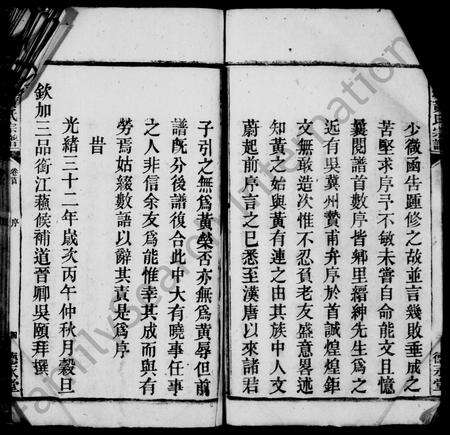 少微函告踵修之故並言幾敗垂成之
苦堅求序予不敏未嘗自命能文且憶
曩閱譜首數序皆鄉里縉紳先生爲之
近有吳冀州贊甫弁序於首誠煌煌鉅
文無敢造次惟不忍負老友盛意畧述
知黃之始與黃有連之由其族中人文
蔚起前序言之已悉至漢唐以來諸君
子引之無爲黃榮否亦無爲黃辱但前
譜既分後譜復合此中大有曉事任事
之人非信余友爲能惟幸其成而與有
勞焉姑綴數語以辭其責是爲序
旹
光緒三十二年歲次丙午仲秋月穀旦
欽加三品銜江蘇候補道晉卿吳頤拜撰
氏宗譜
卷首
序
德永堂
FamilySearch International